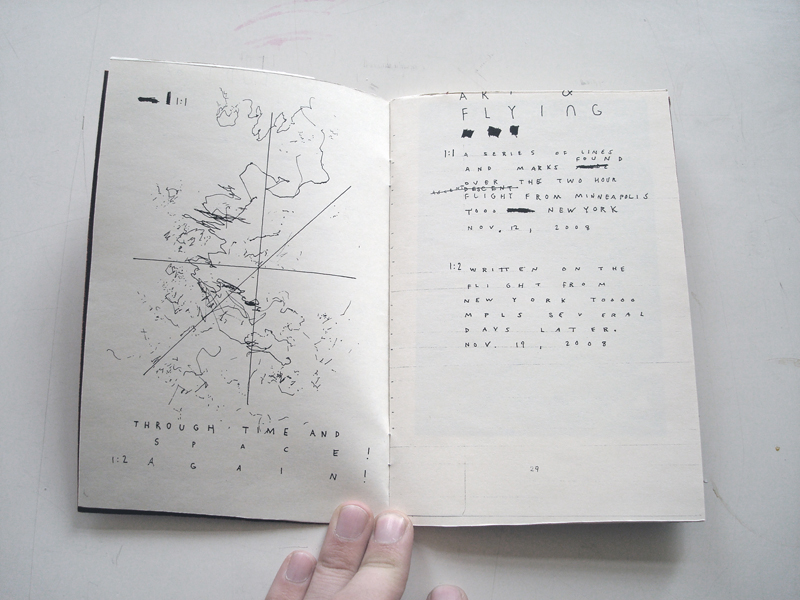 1:1
THROUGH TIME AND
SPACE!
1:2 AGAIN!
FLYING
1:1 A SERIES OF LINES
FOUND
AND MARKS
OVER THE TWO HOUR
DESCENT
FLIGHT FROM MINNEAPOLIS
TOOO NEW YORK
NOV. 12, 2008
1:2 WRITTEN ON THE
FLIGHT FROM
NEW YORK TOOOO
MPLS SEVERAL
DAYS LATER.
NOV. 19, 2008
29